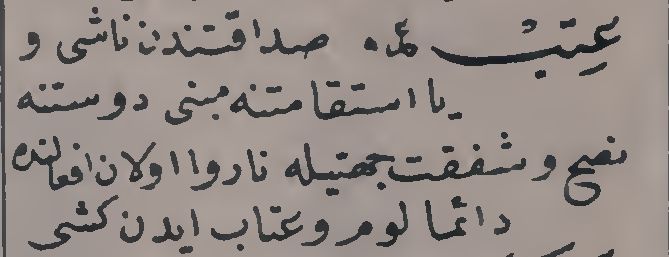 عتب ع‍ـه صداقتندن ناشی و
یا استقامتنه مبنی دوستنه
نصح و شفقت جهتیله ناروا اولان افعالنده
دائما لوم و عتاب ایدن کشی